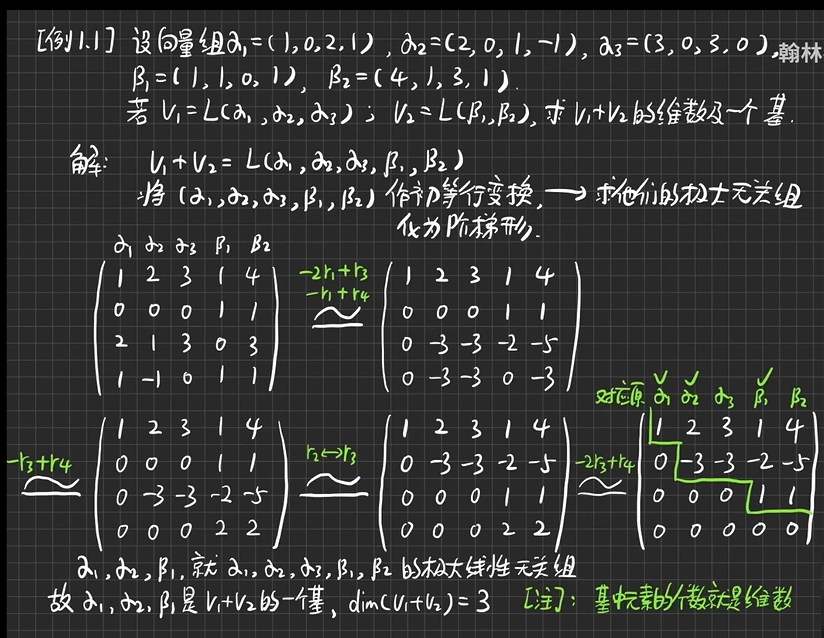 [例1.1] 设向量组α₁=(1,0,2,1), α₂=(2,0,1,-1), α₃=(3,0,3,0),
翰林
β₁=(1,1,0,1), β₂=(4,1,3,1).
若 V₁=L(α₁,α₂,α₃); V₂=L(β₁,β₂), 求 V₁+V₂的维数及一个基.
解: V₁+V₂=L(α₁,α₂,α₃,β₁,β₂)
将(α₁,α₂,α₃,β₁,β₂)作初等行变换, → 求他们的极大无关组
化为阶梯形.
α₁ α₂ α₃ β₁ β₂
1 2 3 1 4
0 0 0 1 1
2 1 3 0 3
1 -1 0 1 1
-2r₁+r₃
-r₁+r₄
≅
1 2 3 1 4
0 0 0 1 1
0 -3 -3 -2 -5
0 -3 -3 0 -3
-r₃+r₄
≅
1 2 3 1 4
0 0 0 1 1
0 -3 -3 -2 -5
0 0 0 2 2
r₂↔r₃
≅
1 2 3 1 4
0 -3 -3 -2 -5
0 0 0 1 1
0 0 0 2 2
-2r₃+r₄
≅
✓ ✓ ✓
对应原 α₁ α₂ α₃ β₁ β₂
1 2 3 1 4
0 -3 -3 -2 -5
0 0 0 1 1
0 0 0 0 0
α₁,α₂,β₁,就α₁,α₂,α₃,β₁,β₂的极大线性无关组
故α₁,α₂,β₁是V₁+V₂的一个基, dim(V₁+V₂)=3 [注]: 基中元素的个数就是维数